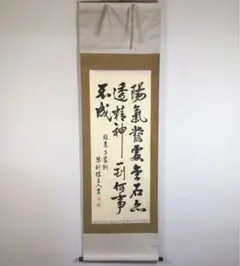 陽氣發處金石亦
透精神一到何事
不成